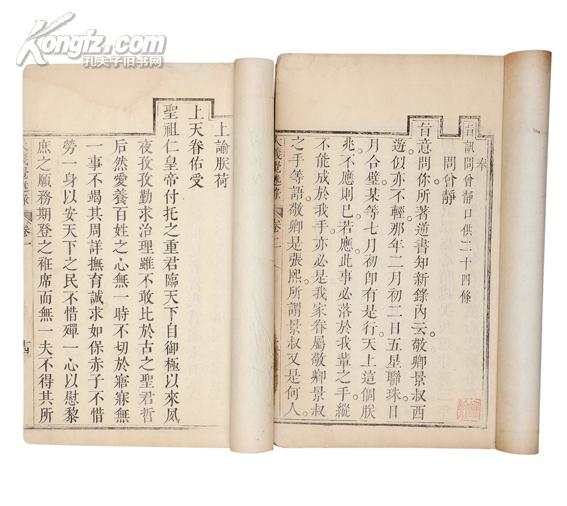 Kongfz.com
孔夫子旧书网
奉
旨訊問曾靜口供二十四條
問曾靜
旨意問你所著逆書知新錄內云敬卿景叔西
遊似亦不輕那年二月初二日五星聯珠日
月合璧某等七月初卽有是行天上這個朕
兆不應則已若應此事必落於我輩之手縱
不能成於我手亦必是我家眷屬敬卿景叔
之手等語敬卿是張熙所謂景叔又是何人
大義覺迷錄 卷二
上諭朕荷
上天眷佑受
聖祖仁皇帝付托之重君臨天下自御極以來夙
夜孜孜勤求治理雖不敢比於古之聖君哲
后然愛養百姓之心無一時不切於寤寐無
一事不竭其周詳撫育誠求如保赤子不惜
勞一身以安天下之民不惜殫一心以慰黎
庶之願務期登之衽席而無一夫不得其所
大義覺迷錄 卷一